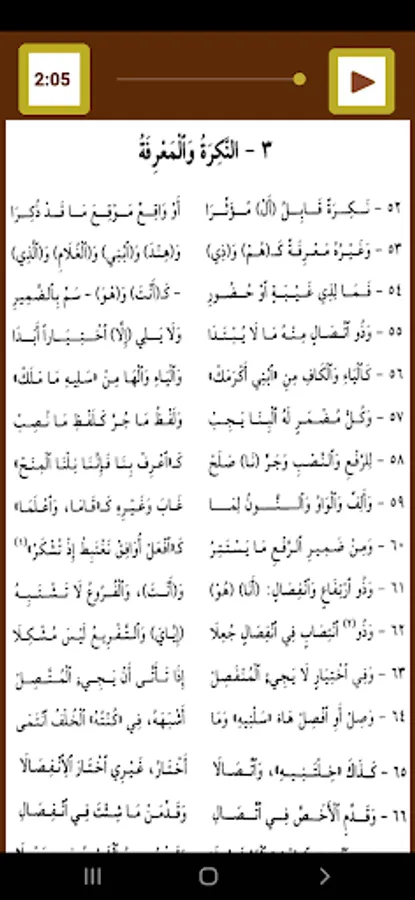 2:05
٣ - النَّكِرَةُ وَٱلْمَعْرِفَةُ
٥٢ - نَكِرَةٌ قَابِلُ (أَلْ) مُؤَثِّرَا أَوْ وَاقِعٌ مَوْقِعَ مَا قَدْ ذُكِرَا
٥٣ - وَغَيْرُهُ مَعْرِفَةٌ كَـ(هُمْ) وَ(ذِي) وَ(هِنْدَ) وَ(ٱبْنِي) وَ(ٱلْغُلَامِ) وَ(ٱلَّذِي)
٥٤ - فَمَا لِذِي غَيْبَةٍ أَوْ حُضُورِ - كَـ(أَنْتَ) وَ(هُوَ) - سَمِّ بِٱلضَّمِيرِ
٥٥ - وَذُو ٱتِّصَالٍ مِنْهُ مَا لَا يُبْتَدَا وَلَا يَلِي (إِلَّا) ٱخْتِيَاراً أَبَدَا
٥٦ - كَٱلْيَاءِ وَٱلْكَافِ مِنِ «ٱبْنِي أَكْرَمَكْ» وَٱلْيَاءِ وَٱلْهَا مِنْ «سَلِيهِ مَا مَلَكْ»
٥٧ - وَكُلُّ مُضْمَرٍ لَهُ ٱلْبِنَا يَجِبْ وَلَفْظُ مَا جُرَّ كَلَفْظِ مَا نُصِبْ
٥٨ - لِلرَّفْعِ وَٱلنَّصْبِ وَجَرٍّ (نَا) صَلَحْ كَـ«ٱعْرِفْ بِنَا فَإِنَّنَا نِلْنَا ٱلْمِنَحْ»
٥٩ - وَأَلِفٌ وَٱلْوَاوُ وَٱلنُّونُ لِمَا غَابَ وَغَيْرِهِ كَـ«قَامَا، وَٱعْلَمَا»
٦٠ - وَمِنْ ضَمِيرِ ٱلرَّفْعِ مَا يَسْتَتِرُ كَـ«ٱفْعَلْ أُوَافِقْ نَغْتَبِطْ إِذْ تُشْكَرُ»(١)
٦١ - وَذُو ٱرْتِفَاعٍ وَٱنْفِصَالٍ: (أَنَا) (هُوْ) وَ(أَنْتَ)، وَٱلْفُرُوعُ لَا تَشْتَبِهُ
٦٢ - وَذُو(٢) ٱنْتِصَابٍ فِي ٱنْفِصَالٍ جُعِلَا (إِيَّايَ) وَٱلتَّفْرِيعُ لَيْسَ مُشْكِلَا
٦٣ - وَفِي ٱخْتِيَارٍ لَا يَجِيءُ ٱلْمُنْفَصِلْ إِذَا تَأَتَّى أَنْ يَجِيءَ ٱلْمُتَّصِلْ
٦٤ - وَصِلْ أَوِ ٱفْصِلْ هَاءَ «سَلْنِيهِ» وَمَا أَشْبَهَهُ، فِي «كُنْتُهُ» ٱلْخُلْفُ ٱنْتَمَى
٦٥ - كَذَاكَ «خِلْتَنِيهِ»، وَٱتِّصَالَا أَخْتَارُ، غَيْرِي ٱخْتَارَ ٱلِٱنْفِصَالَا
٦٦ - وَقَدِّمِ ٱلْأَخَصَّ فِي ٱتِّصَالِ وَقَدِّمَنْ مَا شِئْتَ فِي ٱنْفِصَالِ